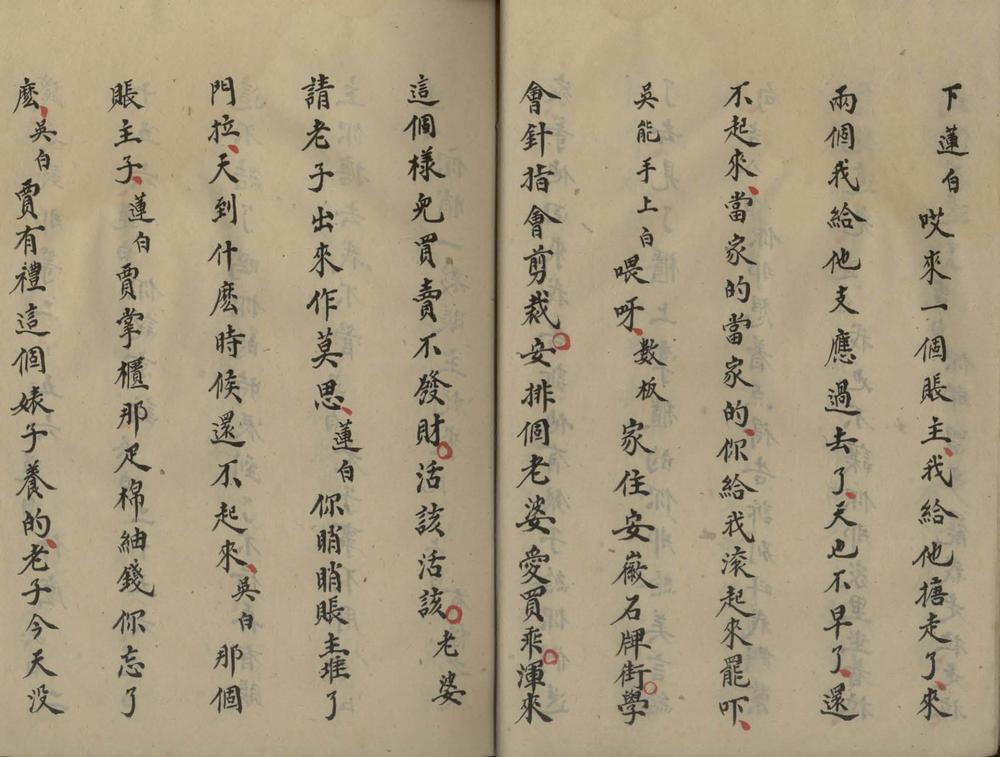 下蓮白哎來一個賬主、我給他搪走了、來
兩個我給他支應過去了、天也不早了、還
不起來、當家的當家的、你給我滚起來罷吓、
吳能手上白喂呀、数板家住安徽石牌街○學
會針指會剪裁○安排個老婆愛買乖○渾來
這個樣児買賣不發財○活該活該○老婆
請老子出來作莫思、蓮白你睄睄賬主堆了
門拉、天到什麽時候、還不起來、吳白那個
賬主子、蓮白賈掌櫃那疋棉紬錢你忘了
麽、吳白賈有禮這個婊子養的、老子今天没